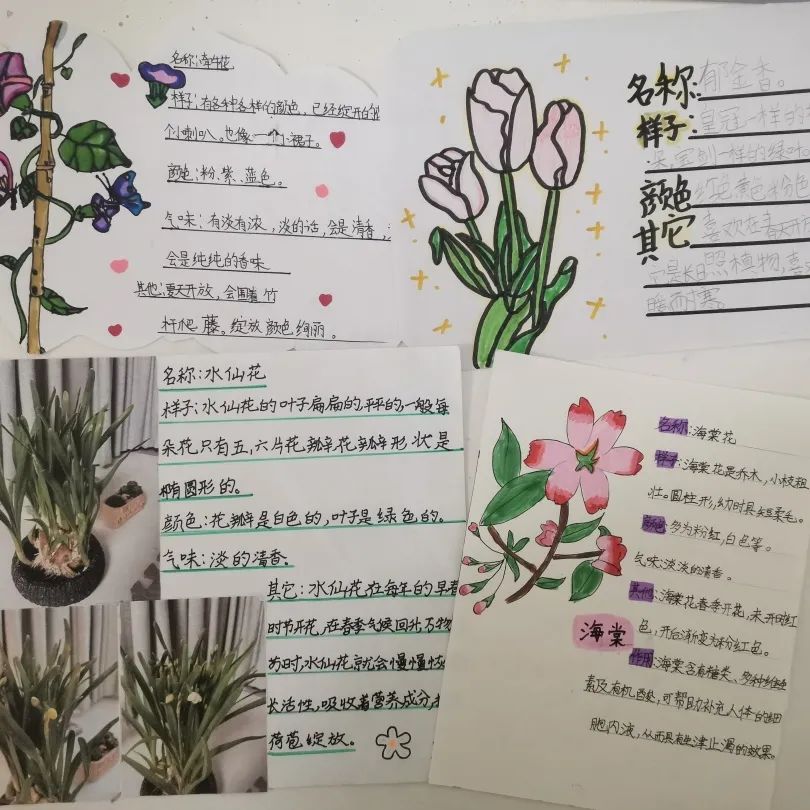 名称:牵牛花
样子:有各种各样的颜色,已经绽开的
个小喇叭。也像一个小裙子。
颜色:粉、紫、蓝色。
气味:有淡有浓,淡的话,会是清香,
会是纯纯的香味
其他:夏天开放,会围着竹
杆爬藤。绽放颜色绚丽。
名称:郁金香。
样子:皇冠一样的
一样的绿叶
颜色 红色黄色粉色
其它 喜欢在春天开
是长日照植物,喜
耐寒。
名称:水仙花
样子:水仙花的叶子扁扁的,平平的,一般每
朵花只有五,六片花瓣花瓣形状是
椭圆形的。
颜色:花瓣是白色的,叶子是绿色的。
气味:淡的清香。
其它:水仙花在每年的早春
时节开花,在春季气候回升万物
时,水仙花就会慢慢恢
长活性,吸收着营养成分,
荷苞绽放。
名称:海棠花
样子:海棠花是乔木,小枝粗
壮。圆柱形,幼时具短柔毛。
颜色:多为粉红,白色等。
气味:淡淡的清香。
其他:海棠花春季开花,未开时红
色,开后渐变为粉红色。
海棠
作用:海棠含有糖类、多种维生
素及有机酸,可帮助补充人体的细
胞内液,从而具有生津止渴的效果。